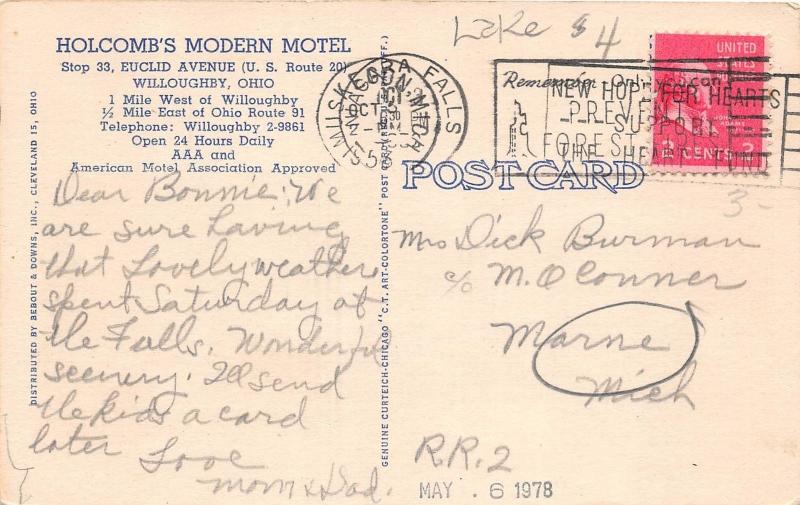 HOLCOMB'S MODERN MOTEL
Stop 33, EUCLID AVENUE (U. S. Route 20)
WILLOUGHBY, OHIO
1 Mile West of Willoughby
½ Mile East of Ohio Route 91
Telephone: Willoughby 2-9861
Open 24 Hours Daily
AAA and
American Motel Association Approved
Dear Bonnie; We
are sure having
that Lovely weather
spent Saturday at
the Falls. Wonderful
scenery. I'll send
the kids a card
later Love
Mom & Dad.
DISTRIBUTED BY BEBOUT & DOWNS, INC., CLEVELAND 15, OHIO
GENUINE CURTEICH-CHICAGO "C.T. ART-COLORTONE" POST CARD
Lake $4
FALLS
MUSKEGON, MICH
OCT
Remember Only you can
PREVENT
FOREST
NEW HOPE FOR HEARTS
SUPPORT
THE HEART FUND
UNITED
STATES
JOHN
ADAMS
2 CENTS 2
POST CARD
3-
Mrs Dick Burman
c/o M. OConner
Marne
Mich
R.R. 2
MAY 6 1978